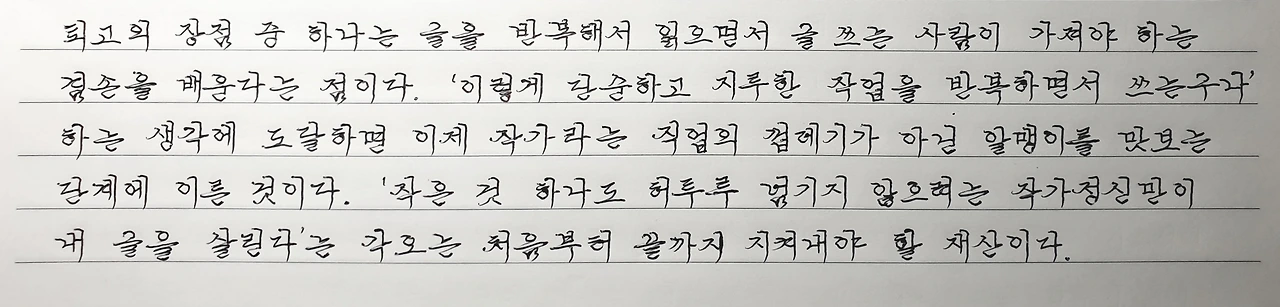 퇴고의 장점 중 하나는 글을 반복해서 읽으면서 글 쓰는 사람이 가져야 하는
겸손을 배운다는 점이다. '이렇게 단순하고 지루한 작업을 반복하면서 쓰는구나'
하는 생각에 도달하면 이제 작가라는 직업의 껍데기가 아닌 알맹이를 맛보는
단계에 이른 것이다. '작은 것 하나도 허투루 넘기지 않으려는 작가정신만이
내 글을 살린다'는 각오는 처음부터 끝까지 지켜내야 할 재산이다.